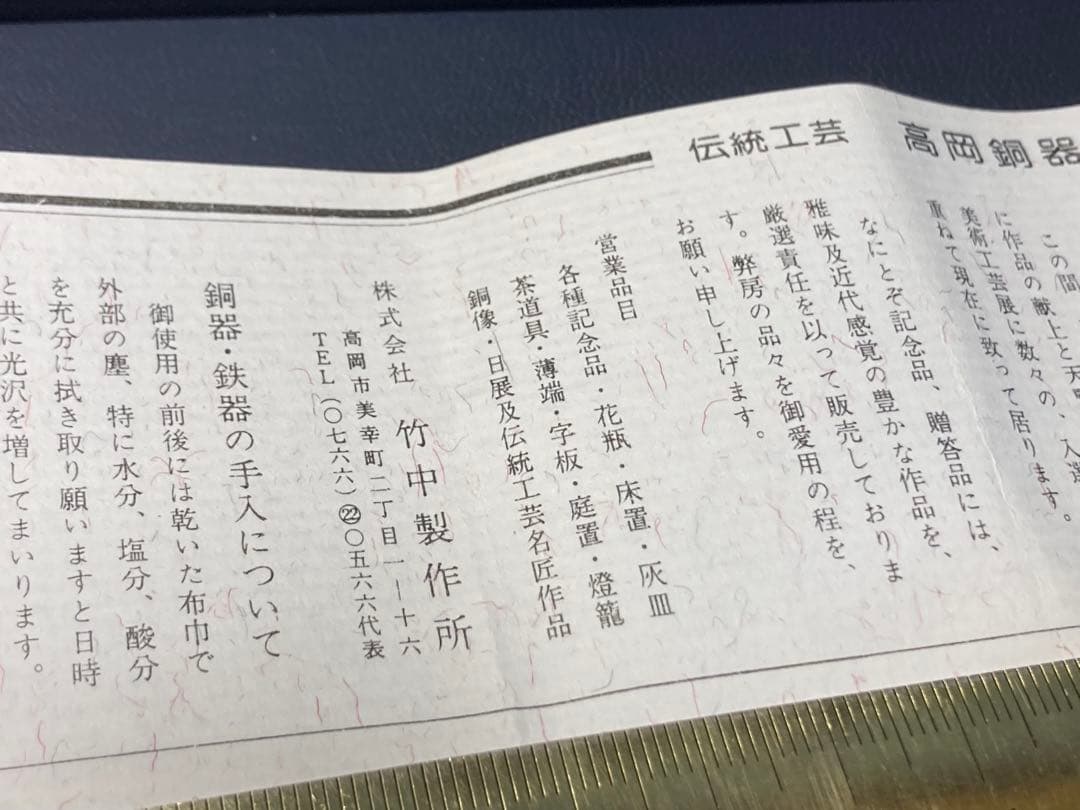 伝統工芸 高岡銅器
この間、
に作品の献上と天
美術工芸展に数々の、入選
重ねて現在に致って居ります。
なにとぞ記念品、贈答品には、
雅味及近代感覚の豊かな作品を、
厳選責任を以って販売しておりま
す。弊房の品々を御愛用の程を、
お願い申し上げます。
営業品目
各種記念品・花瓶・床置・灰皿
茶道具・薄端・字板・庭置・燈籠
銅像・日展及伝統工芸名匠作品
株式会社 竹中製作所
高岡市美幸町二丁目一―十六
TEL(〇七六六)㉒〇五六六代表
銅器・鉄器の手入について
御使用の前後には乾いた布巾で
外部の塵、特に水分、塩分、酸分
を充分に拭き取り願いますと日時
と共に光沢を増してまいります。